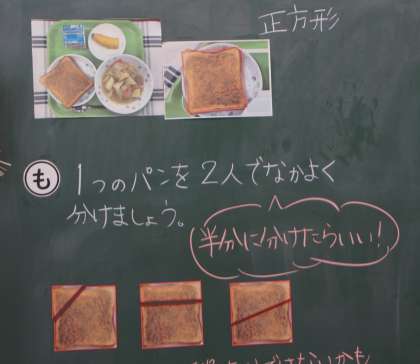 正方形
も 1つのパンを2人でなかよく
分けましょう。
半分に分けたらいい!